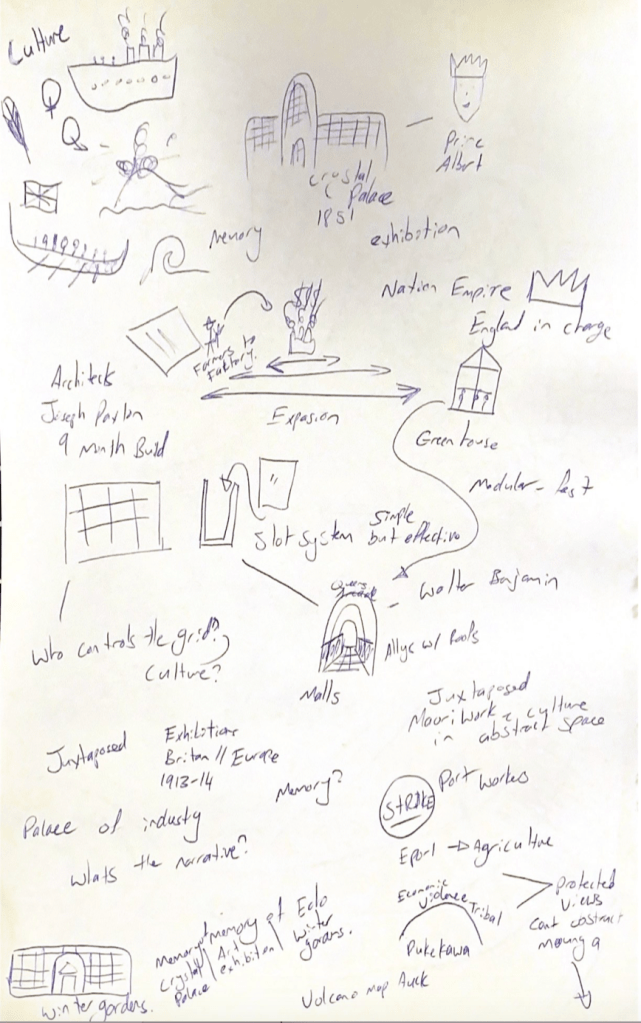 Culture
Prince
Albert
Crystal
Palace
1851
exhibition
Memory
Nation Empire
England in charge
Farmers to
Factory.
Architects
Joseph Paxton
9 Month Build
Expasion
Greenhouse
Modular - fast
Slot System
Simple
but effective
Queens
Arcade
Walter Benjamin
Allys w/ Roofs
Malls
Who controls the grid?
Culture?
Juxtaposed
Maori work + culture
in abstract space
Juxtaposed
Exhibitions
Britan // Europe
1913-14
Memory?
STRIKE
Port workes
Palace of industry
Whats the narrative?
Eport → Agriculture
Economic
Violence
Tribal
Pukekawa
Protected
views
Cant obstruct
Memory of
Crystal
Palace
memory of
Art
exhibition
winter
gardens.
Volcano map Auck
Winter gardens.